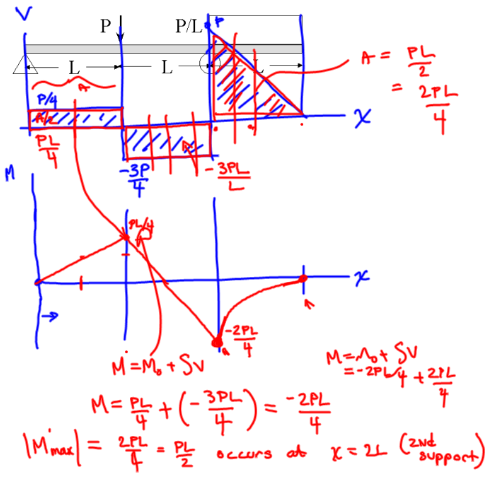 V
P
P/L
P
L
L
L
A
A = PL/2
= 2PL/4
P/4
x
PL/4
-3P/4
-3PL/L
M
PL/4
x
-2PL/4
M = M₀ + SV
M = M₀ + SV
= -2PL/4 + 2PL/4
M = PL/4 + (-3PL/4) = -2PL/4
|M'max| = 2PL/4 = PL/2 occurs at x = 2L (2nd support)